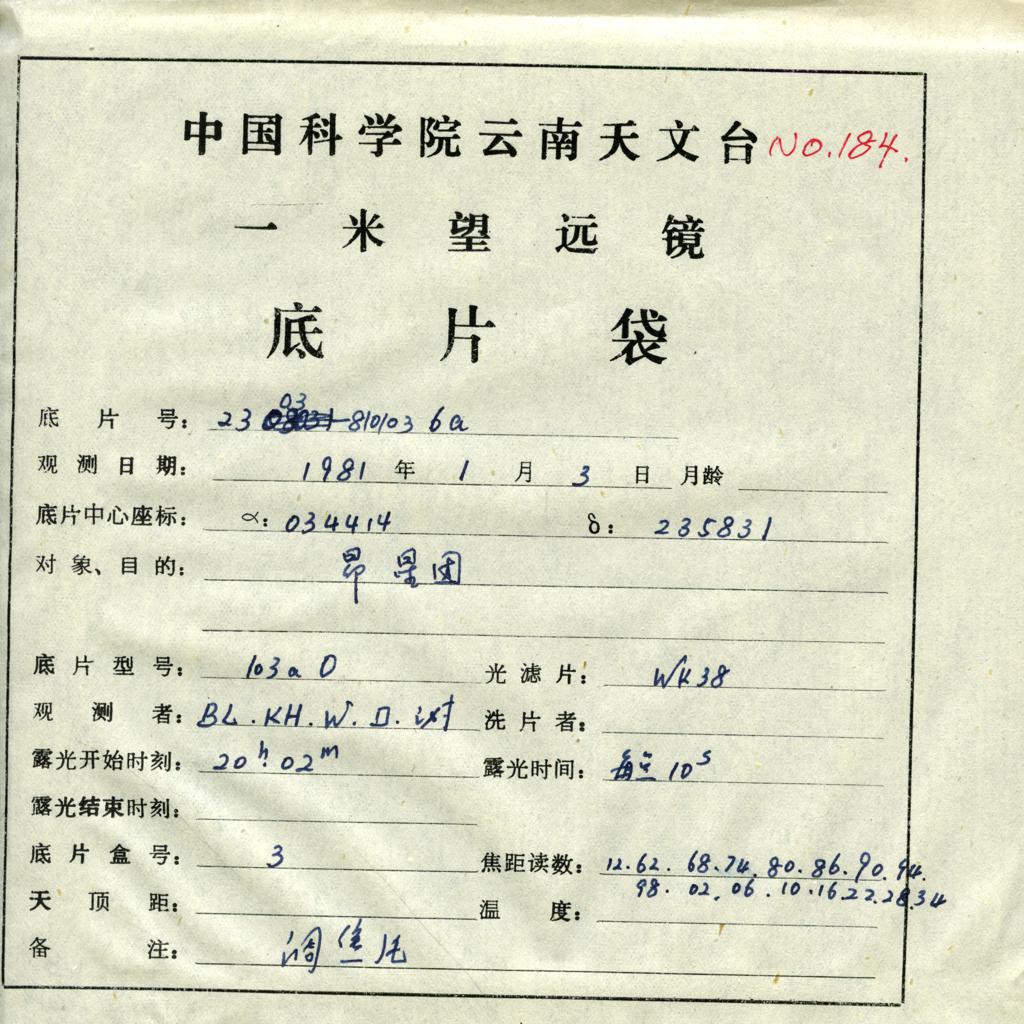 中国科学院云南天文台 NO.184.
一米望远镜
底片袋
底片号： 23 03 810103 6a
观测日期： 1981 年 1 月 3 日 月龄
底片中心座标： α： 034414 δ： 235831
对象、目的： 昴星团
底片型号： 103a O 光滤片： WK38
观测者： BL. KH. W. D. 洗片者：
露光开始时刻： 20h 02m 露光时间： 10s
露光结束时刻：
底片盒号： 3 焦距读数： 12.62. 68.74. 80. 86. 90. 94.
98. 02. 06. 10. 16. 22. 28 34
天顶距： 温度：
备注： 调焦